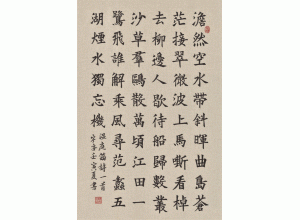 澹然空水帶斜暉曲島蒼
茫接翠微波上馬嘶看棹
去柳邊人歇待船歸數叢
沙草羣鷗散萬頃江田一
鷺飛誰解乘風尋范蠡五
湖煙水獨忘機
温庭筠詩一首
壬寅夏書